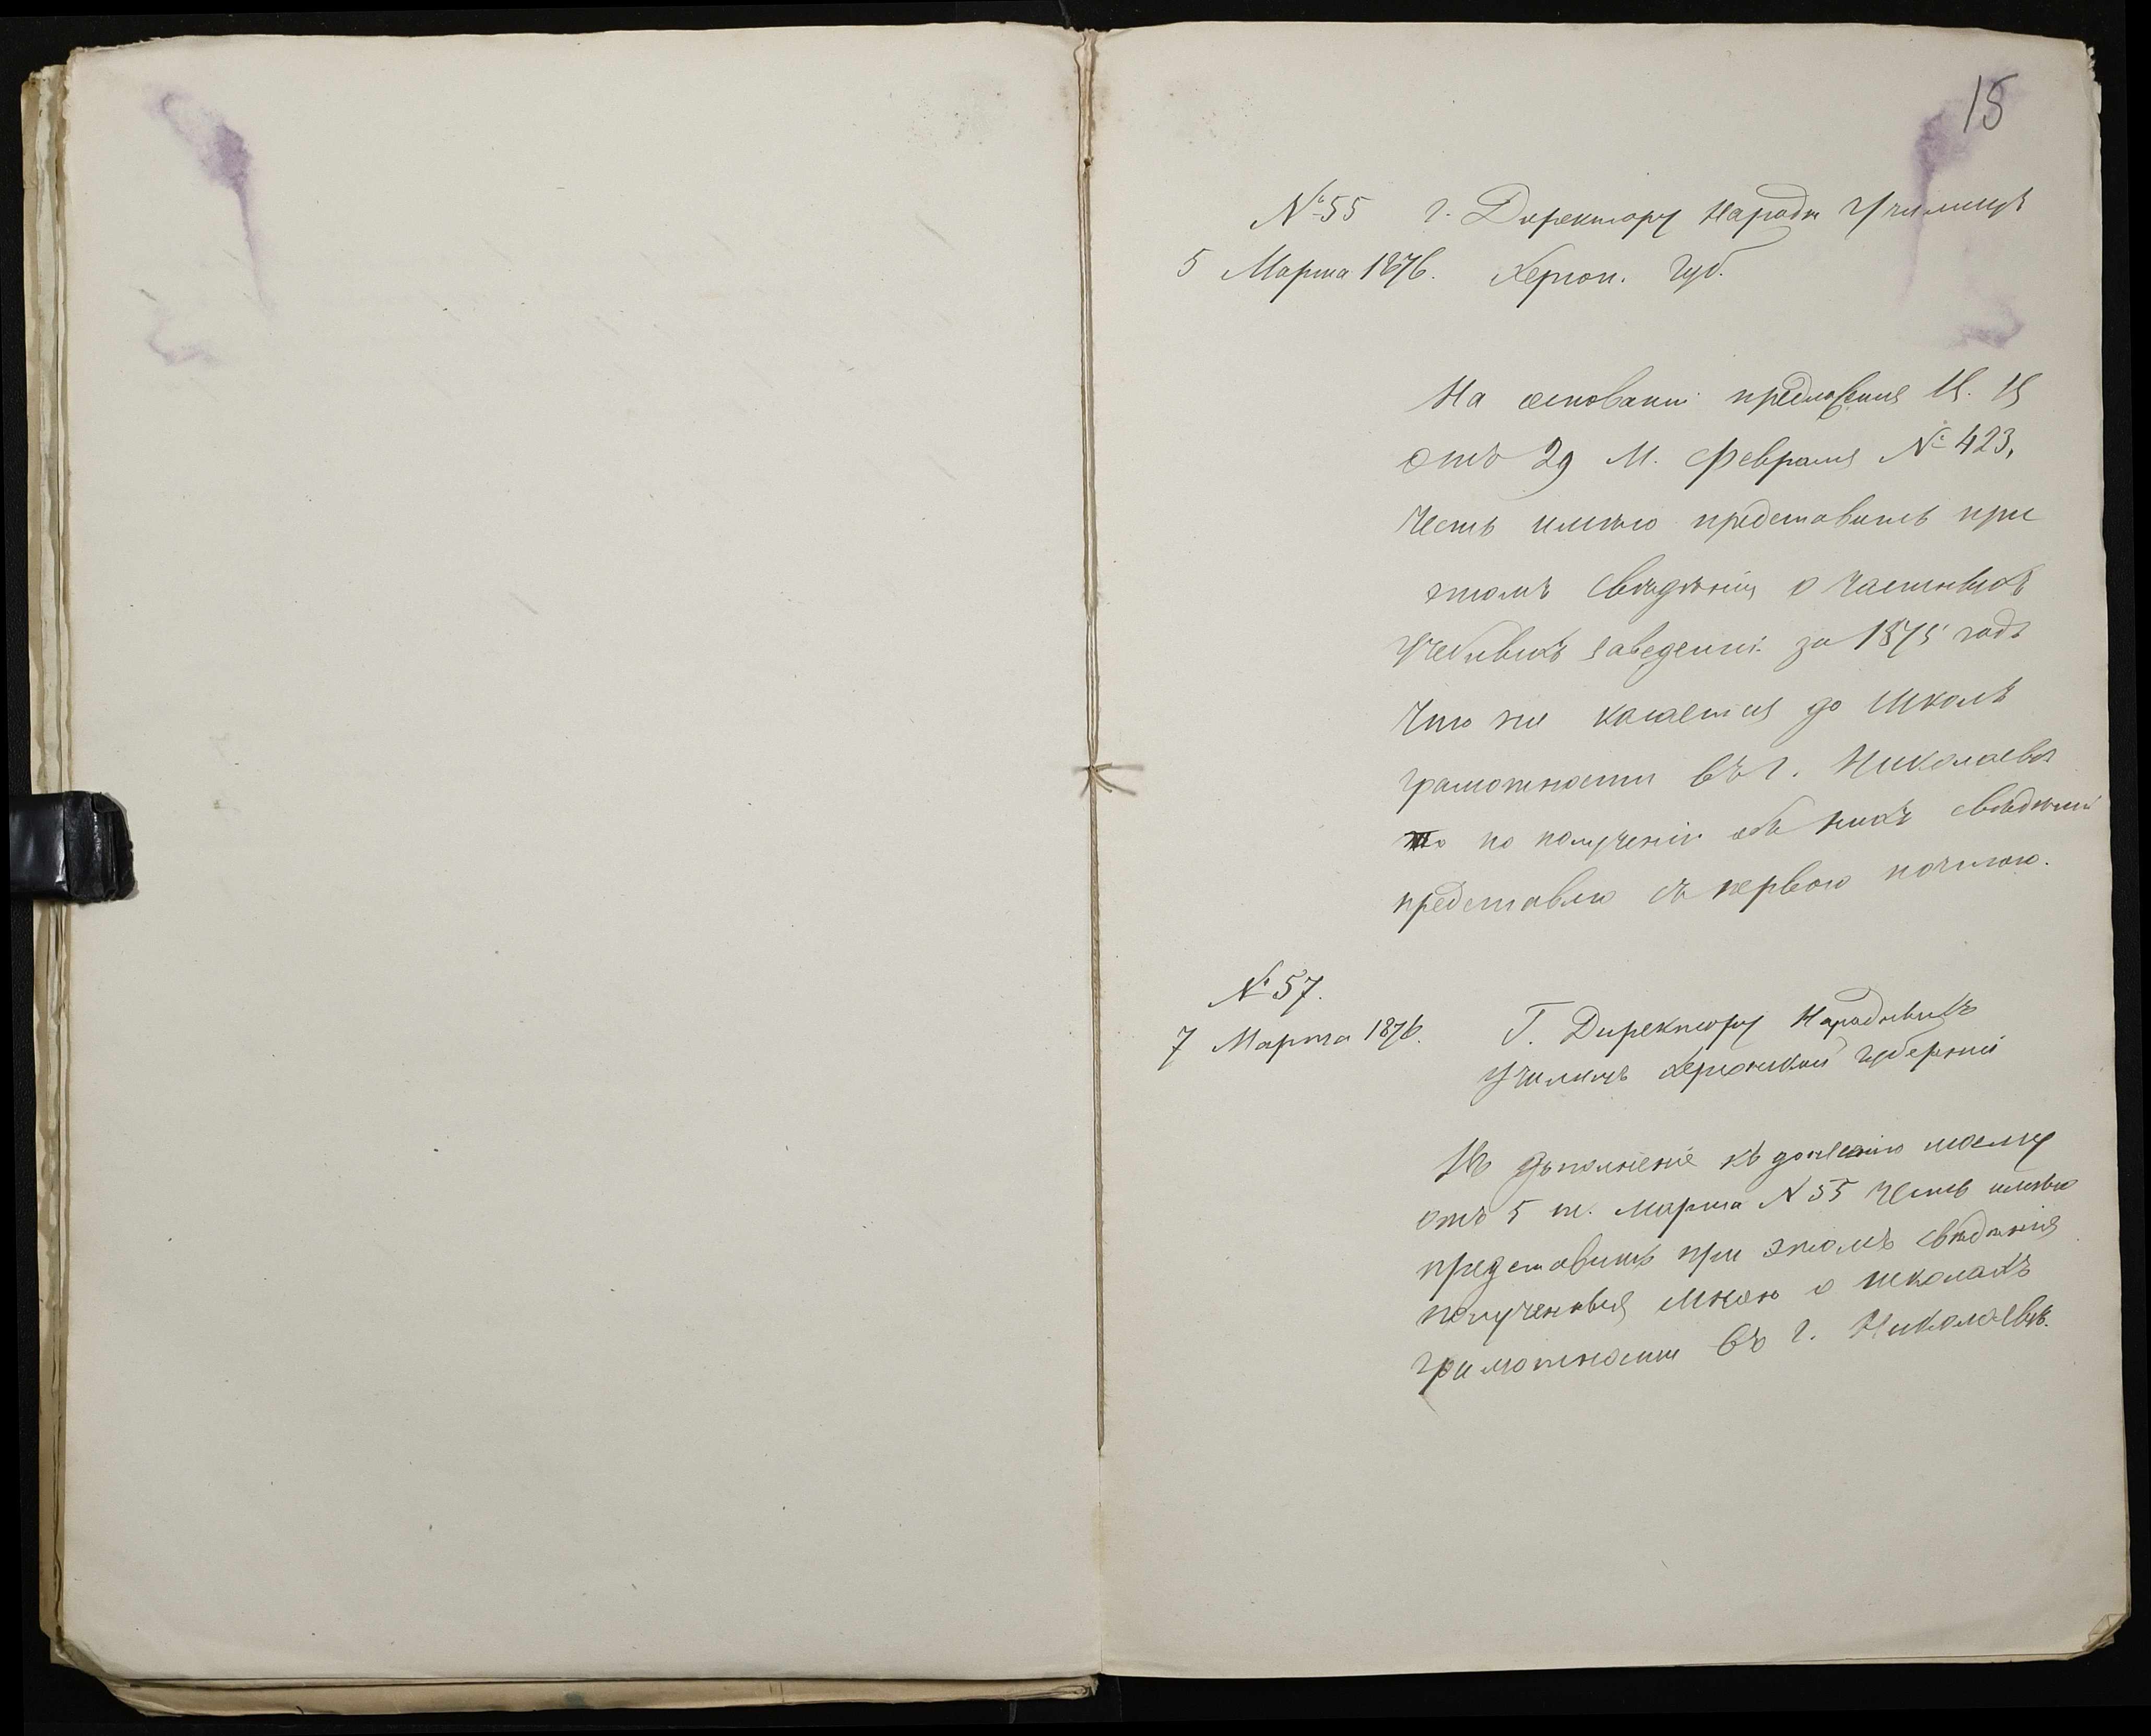 15
№ 55 г. Директору Народн Училищъ
5 Марта 1876. Херсон. Губ.
На основаніи предложенія
отъ 29 М. Февраля № 423,
Честь имѣю представить при
этомъ свѣдѣнія о частныхъ
учебныхъ заведеній за 1875 годъ
Что же касается до Школъ
грамотности въ г. Николаевѣ
то по полученіи объ нихъ свѣдѣній
представлю съ первою почтою.
№ 57.
7 Марта 1876. Г. Директору Народныхъ
Училищъ Херсонской Губерніи
Въ дополненіе къ донесенію моему
отъ 5 т. Марта № 55 Честь имѣю
представить при этомъ свѣдѣнія
полученныя мною о школахъ
грамотности въ г. Николаевѣ.